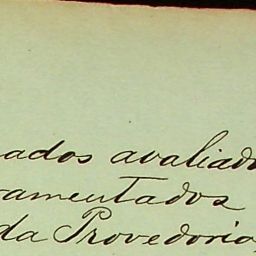 ados avaliad
ramentados
da Provedoria